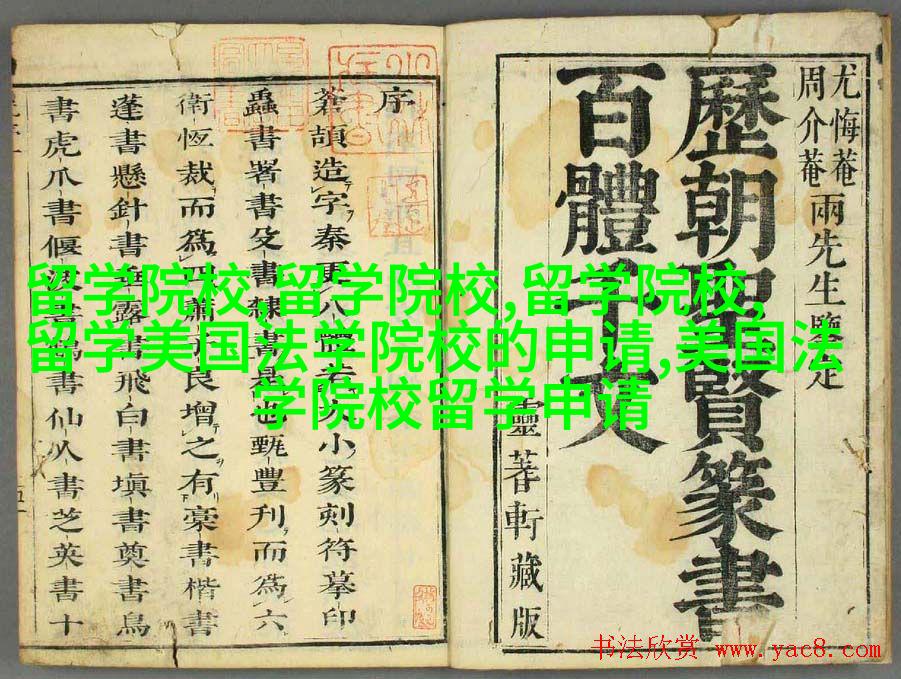 尤悔菴
周介菴
兩先生鑒定
歷朝聖賢篆書
百體千文
靈蓍軒藏版
序
蒼頡造字秦更八體小篆刻符摹印
蟲書署書殳書隸書是也甄豐刊而爲六
衛恆裁而爲四蕭子良增之有藁書楷書
蓬書懸針書垂露書飛白書填書奠書鳥
書虎爪書偃波書鶴書仙人書芝英書十
留学院校,留学院校,留学院校,
留学美国法学院校的申请,美国法
学院校留学申请
书法欣赏 www.yac8.com